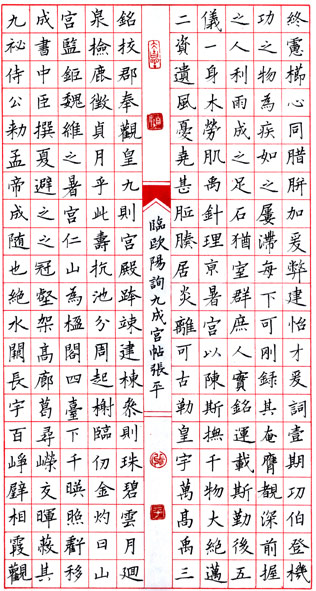 終慮櫛心同腊胼加爰弊建怡才爰詞壹期功伯登機
功之物為疾如之屢滯每下可剛録其奄膺觀深前握
之人利雨成之足石猶室群庶人實銘運載斯勤後五
儀一身木勞肌禹針理京暑宮以陳斯撫千物大絕邁
二資遺風憂堯甚胝腠居炎離可古勒皇宇萬高禹三
臨歐陽詢九成宮帖張平
銘挍郡奉觀皇九則宮殿跨竦建棟參則珠碧雲月廻
泉檢鹿徵貞月乎此壽抗池分周起榭臨仞金灼日山
宮監鉅魏維之暑宮仁山為楹閣四臺下千暎照虧移
成書中臣撰夏避之之冠壑架高廊葛尋嶸交暉蔽其
九祕侍公勅孟帝成隨也絕水闕長宇百崢壁相霞觀